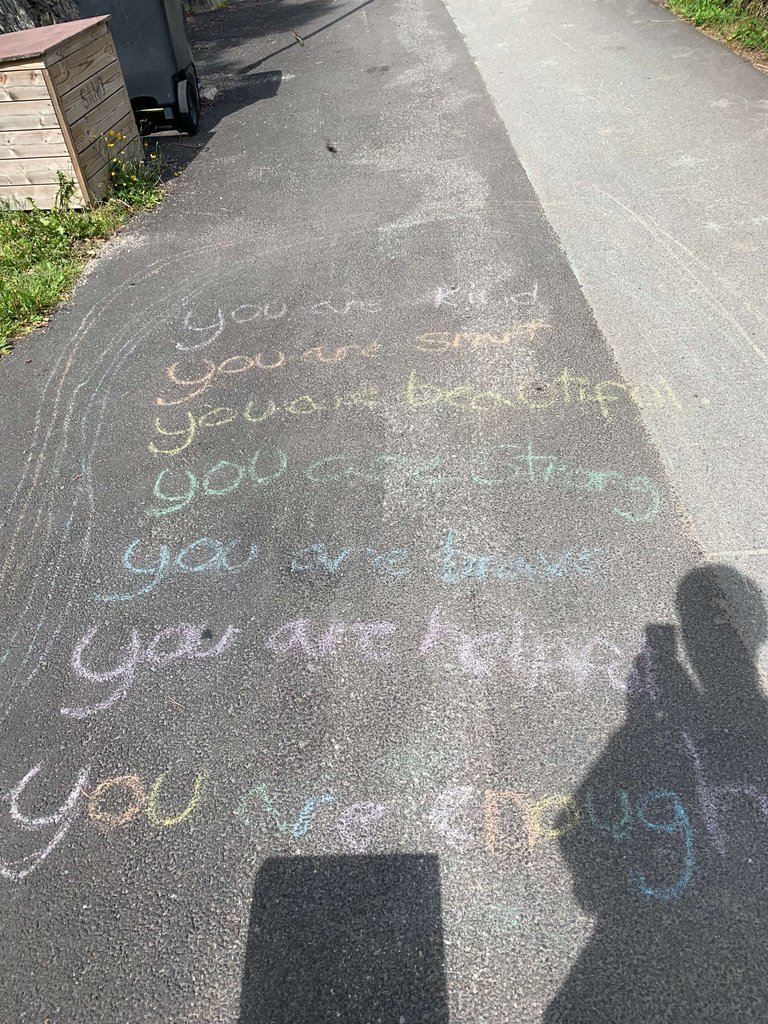 you are kind
you are smart
you are beautiful
you are strong
you are brave
you are helpful
you are enough